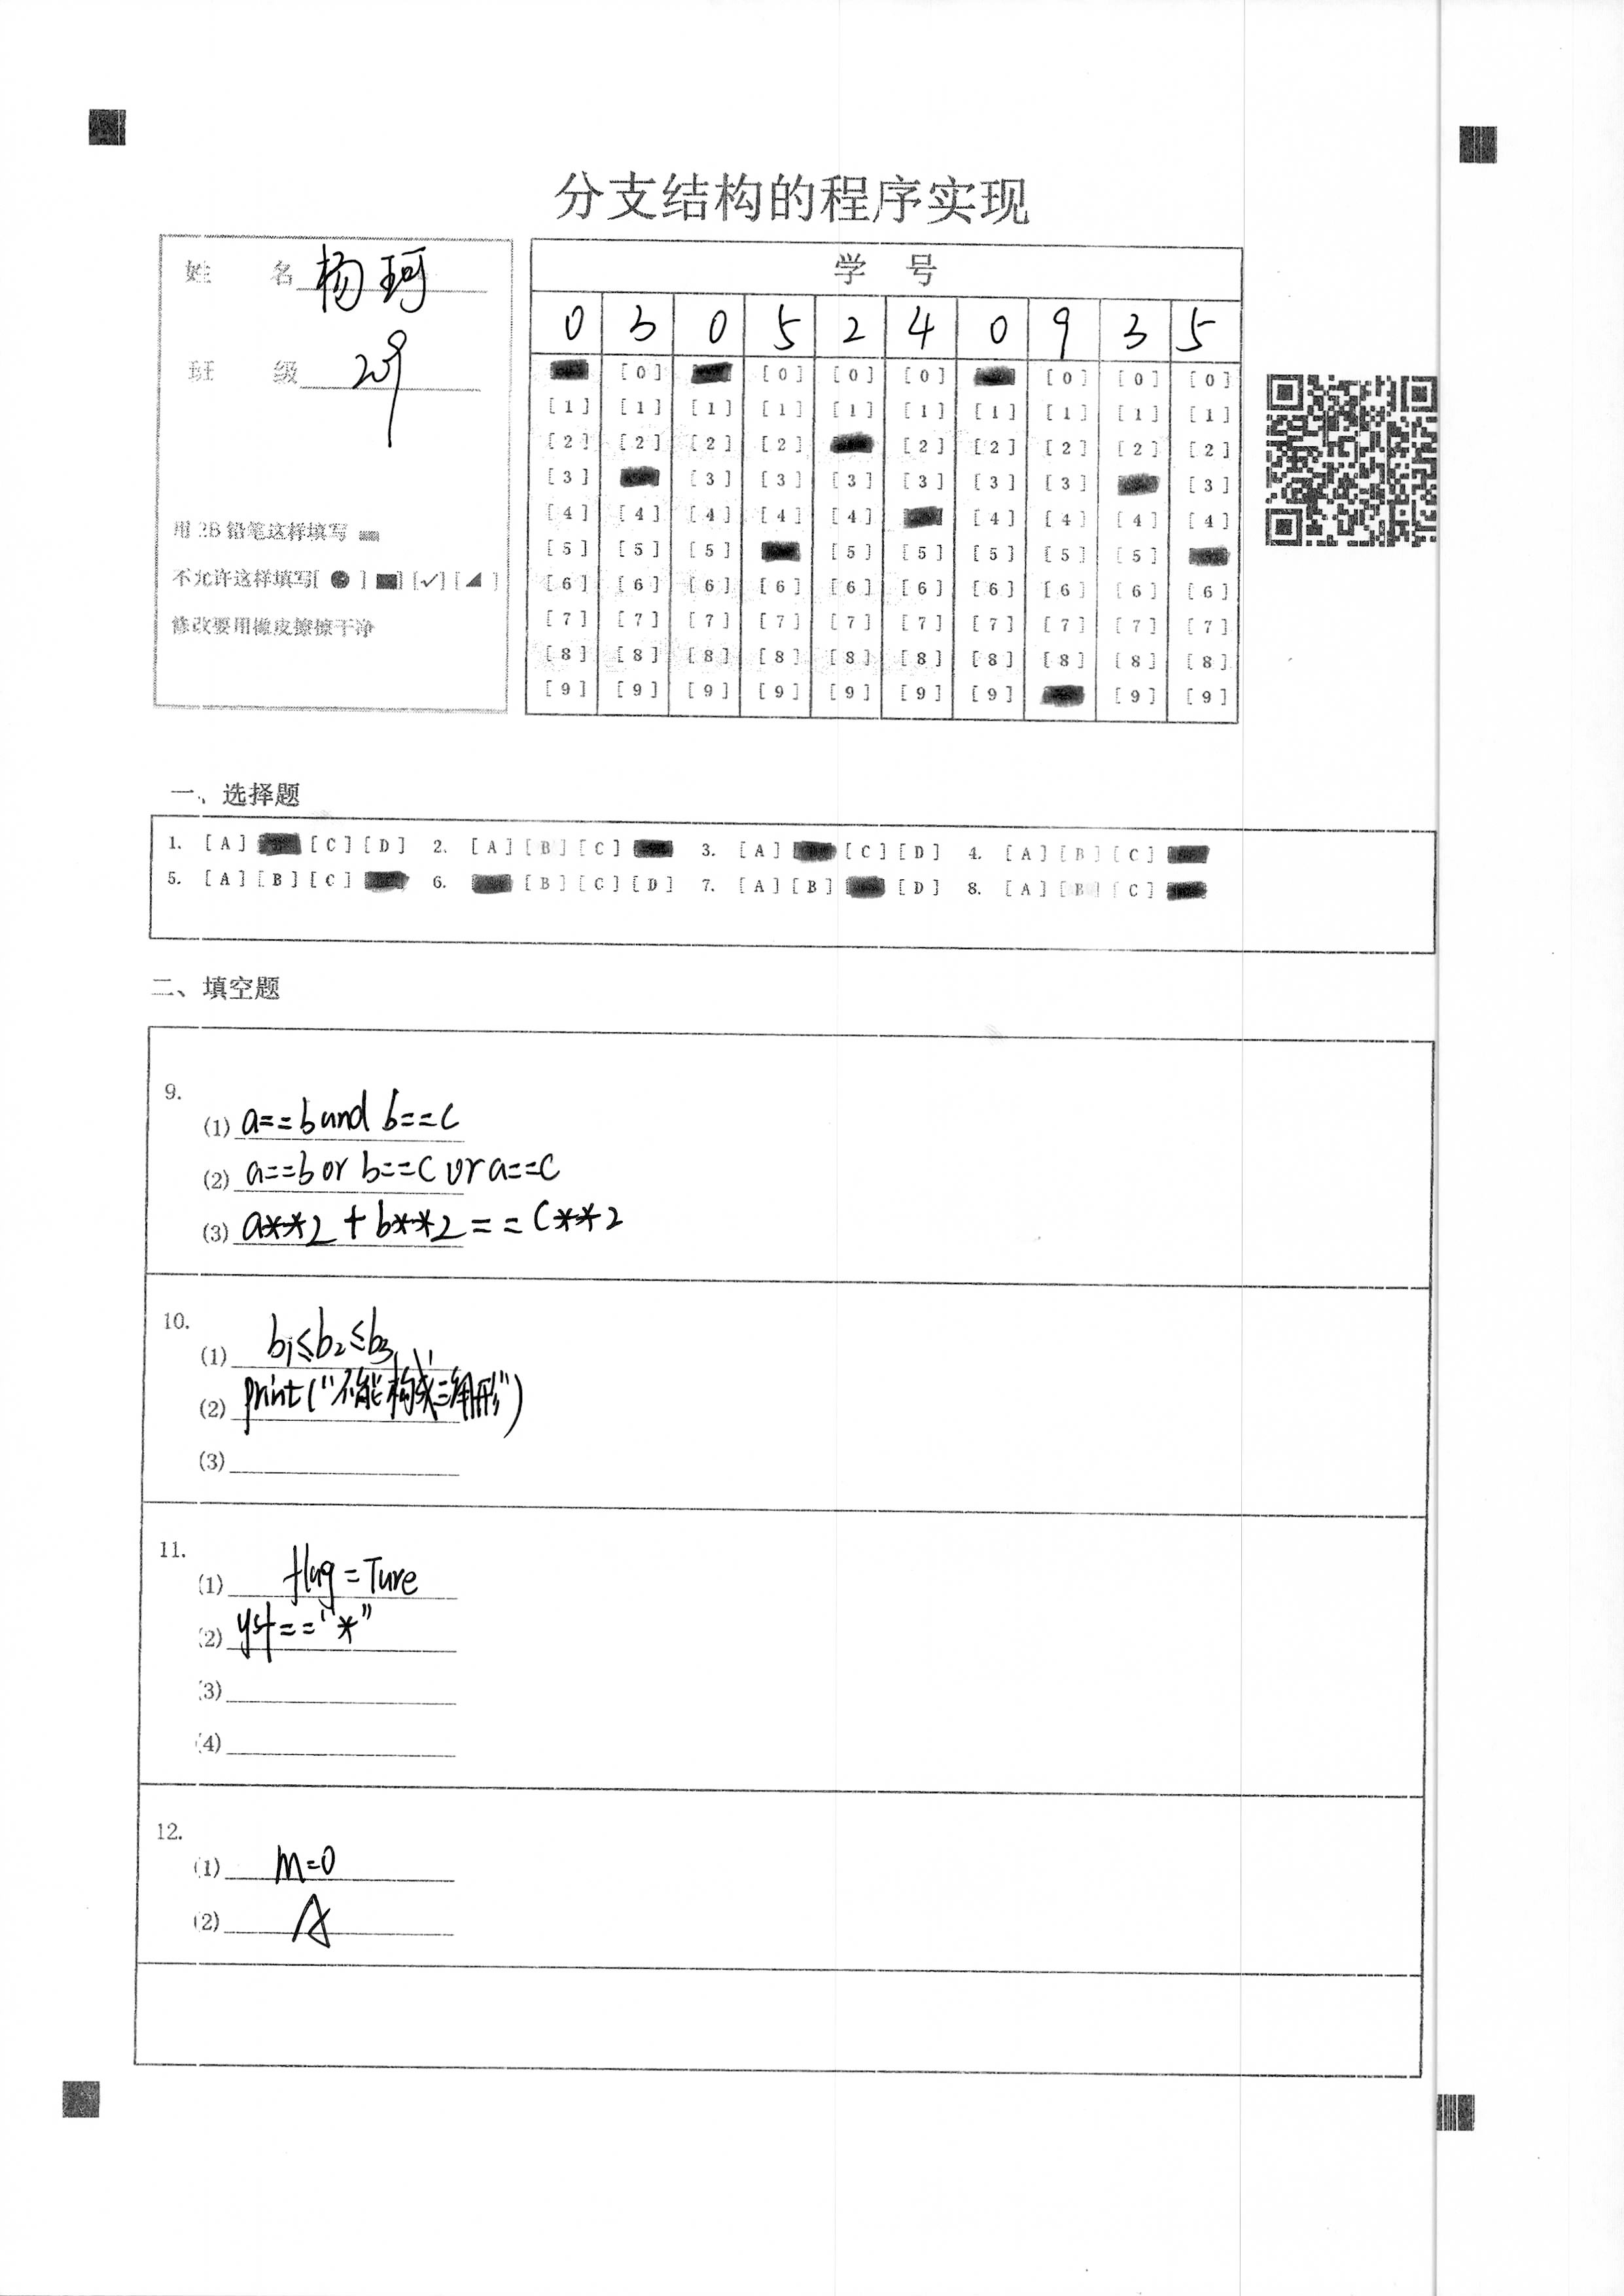 分支结构的程序实现
姓 名 杨珂
班 级 209
用2B铅笔这样填写
不允许这样填写[ ● ] [✓] [ ]
修改要用橡皮擦擦干净
学 号
0 3 0 5 2 4 0 9 3 5
[0] [0] [0] [0] [0] [0] [0]
[1] [1] [1] [1] [1] [1] [1] [1] [1] [1]
[2] [2] [2] [2] [2] [2] [2] [2] [2]
[3] [3] [3] [3] [3] [3] [3] [3]
[4] [4] [4] [4] [4] [4] [4] [4] [4]
[5] [5] [5] [5] [5] [5] [5] [5]
[6] [6] [6] [6] [6] [6] [6] [6] [6] [6]
[7] [7] [7] [7] [7] [7] [7] [7] [7] [7]
[8] [8] [8] [8] [8] [8] [8] [8] [8] [8]
[9] [9] [9] [9] [9] [9] [9] [9] [9]
一、选择题
1. [A] [C] [D] 2. [A] [B] [C] 3. [A] [C] [D] 4. [A] [B] [C]
5. [A] [B] [C] 6. [B] [C] [D] 7. [A] [B] [D] 8. [A] [B] [C]
二、填空题
9.
(1) a==b and b==c
(2) a==b or b==c or a==c
(3) a**2+b**2==c**2
10.
(1) b1≤b2≤b3
(2) print("不能构成三角形")
(3)
11.
(1) flag=Ture
(2) yst=="*"
(3)
(4)
12.
(1) m=0
(2) A